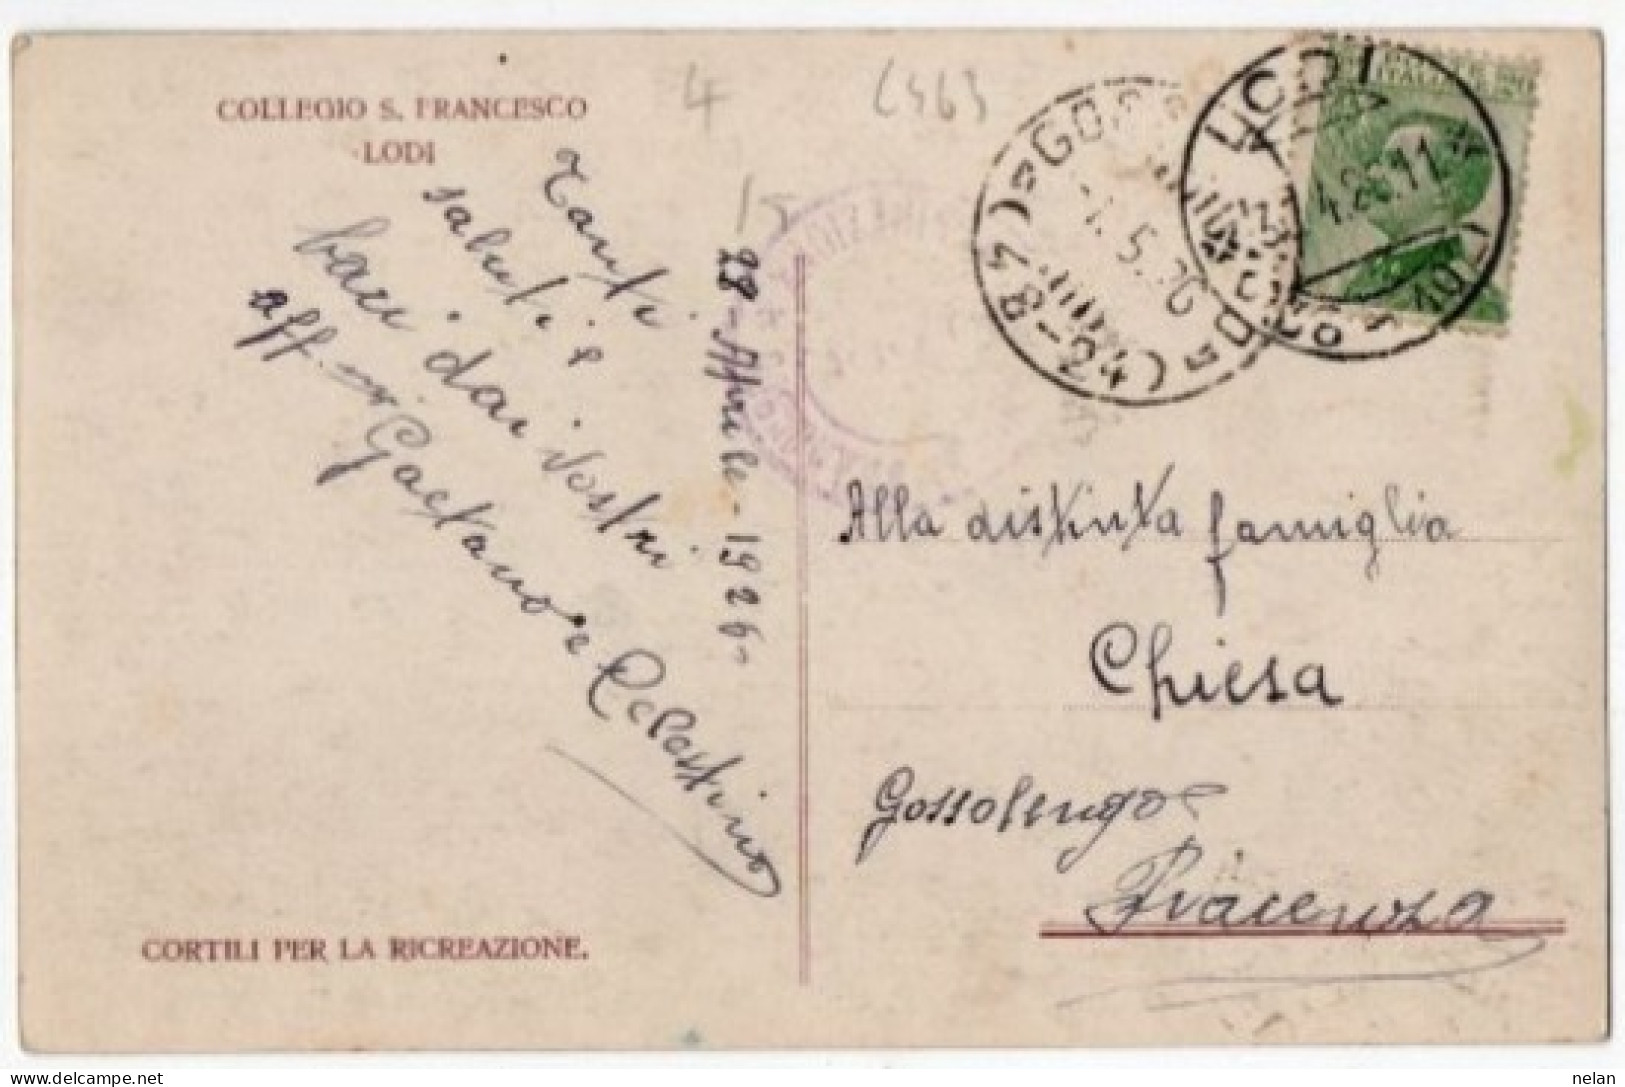 COLLEGIO S. FRANCESCO
LODI
4
15
Tanti
saluti e
baci dai vostri
aff.mi
Gaetano e Celestino
28-Aprile-1926-
CORTILI PER LA RICREAZIONE.
LODI
4.26.11
5.26
(42-84)
Alla distinta famiglia
Chiesa
Gossolengo
Piacenza
nelan